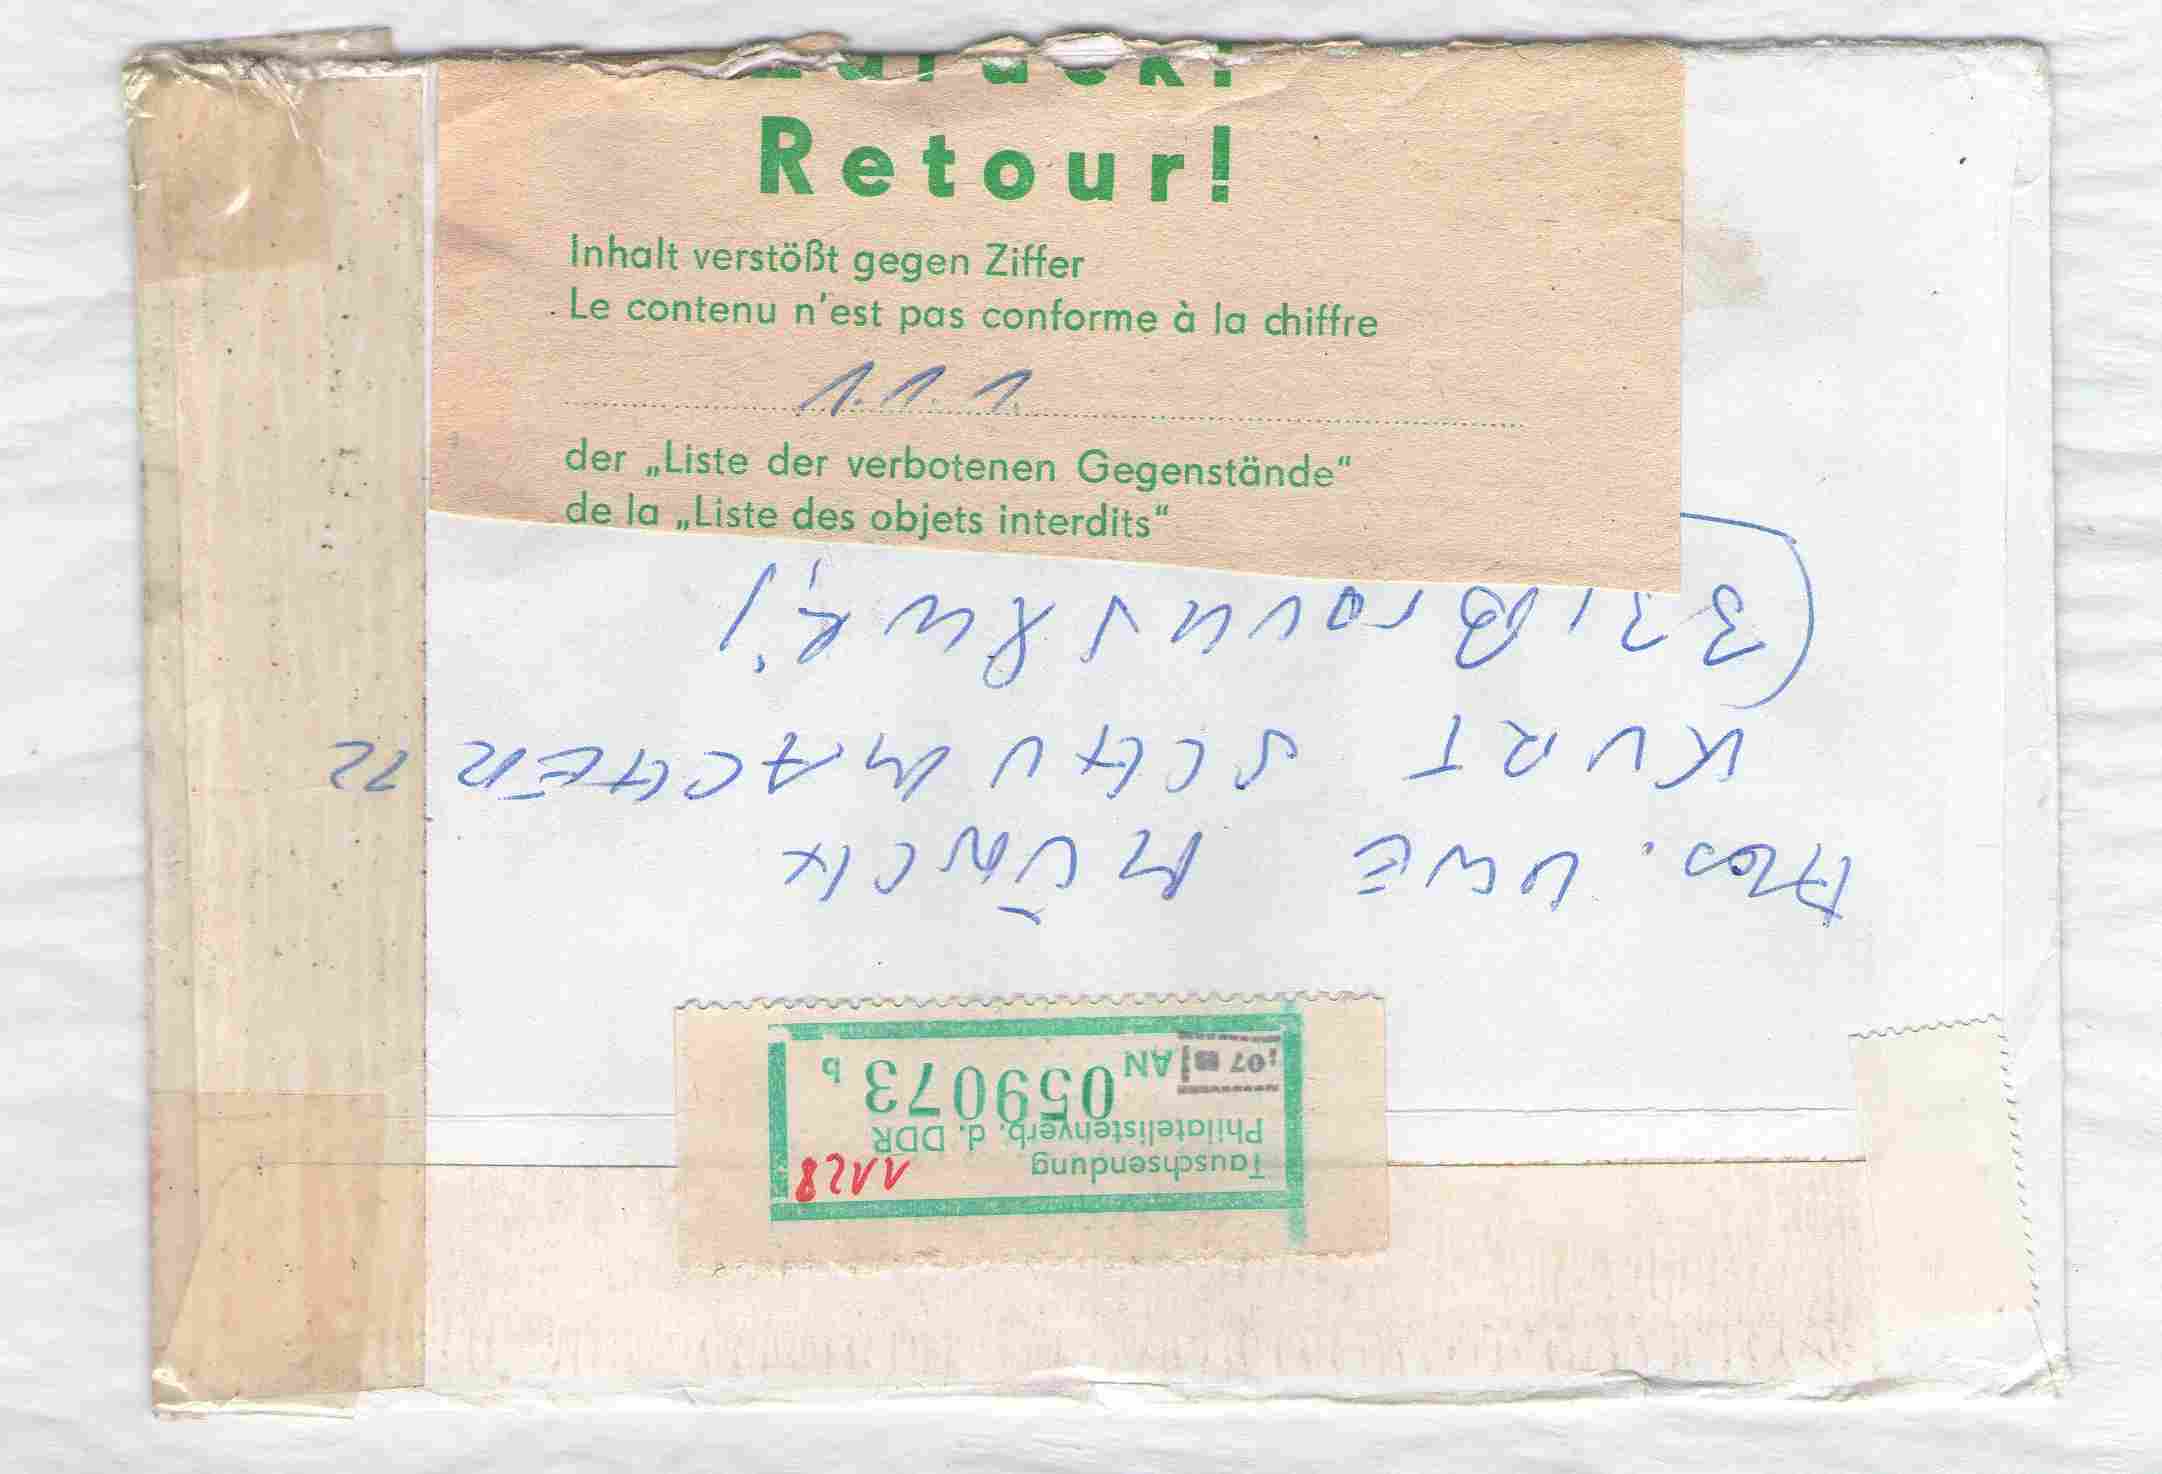 Zurück!
Retour!
Inhalt verstößt gegen Ziffer
Le contenu n'est pas conforme à la chiffre
1.1.1.
der „Liste der verbotenen Gegenstände“
de la „Liste des objets interdits“
Tauschsendung 1128
Philatelistenverb. d. DDR
07 AN 059073 b
Abs. UWE MÜNCH
KURT SCHUMACHER 22
(33 Braunschweig)